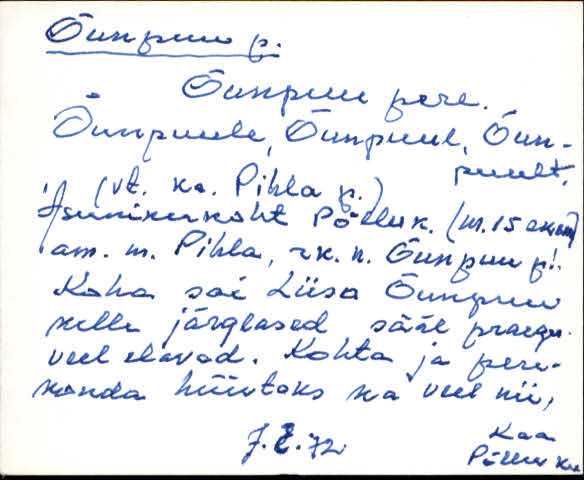 Õunpuu p.
Õunpuu pere.
Õunpuule, Õunpuul, Õun-
puult.
(vt. ka. Pihla p.)
Asunikukoht Põllu k. (m. 15
am. n. Pihla, rk. n. Õunpuu p.
Koha sai Liisa Õunpuu
kelle järglased sääl praegu
veel elavad. Kohta ja pere-
konda hüütaks ka veel nii,
J. E. 72
Kaa
Põllu